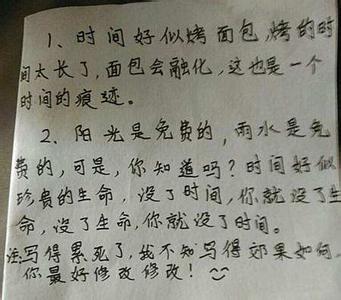 1、时间好似烤面包,烤的时
间太长了,面包会融化,这也是一个
时间的痕迹。
2、阳光是免费的,雨水是免
费的,可是,你知道吗?时间好似
珍贵的生命,没了时间,你就没了生
命,没了生命,你就没了时间。
注:写得累死了,我不知写得效果如何,
你最好修改修改!